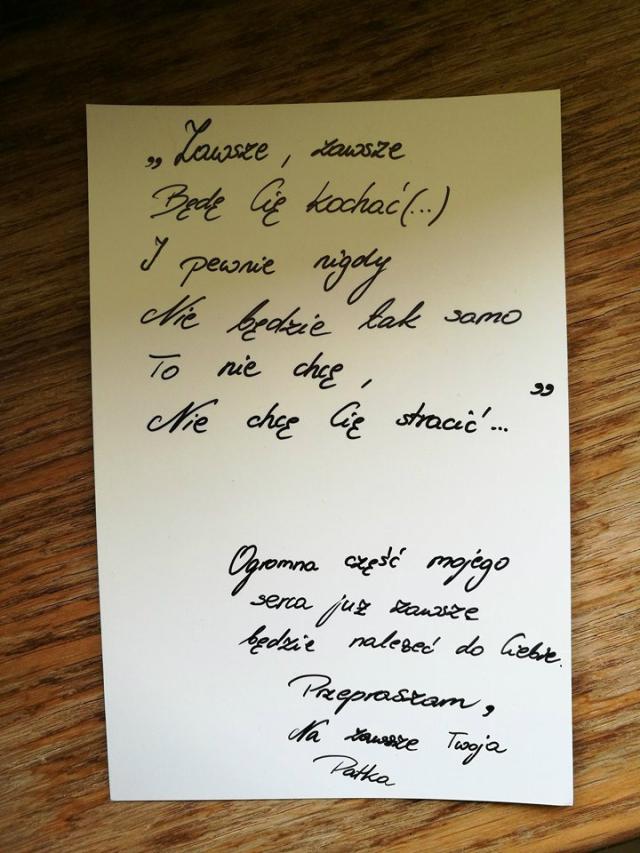 „Zawsze, zawsze
Będę Cię kochać(...)
I pewnie nigdy
Nie będzie tak samo
To nie chcę,
Nie chcę Cię stracić...”
Ogromna część mojego
serca już zawsze
będzie należeć do Ciebie.
Przepraszam,
Na zawsze Twoja
Patka